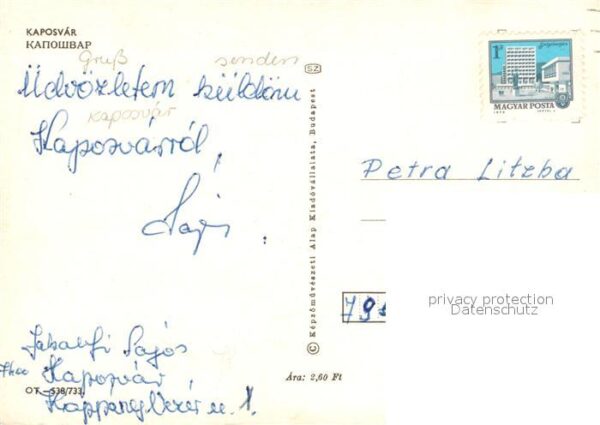 KAPOSVÁR
КАПОШВАР
gruß senden
Üdvözletem küldöm
kaposvár
Kaposvárról,
Lajos
SZ
© Képzőművészeti Alap Kiadóvállalata, Budapest
1Ft
MAGYAR POSTA
Petra Litzba
privacy protection
Datenschutz
Lajos
7400 Kaposvár
OT.—538/733
Koppány Vezér u. 1.
Ára: 2,60 Ft